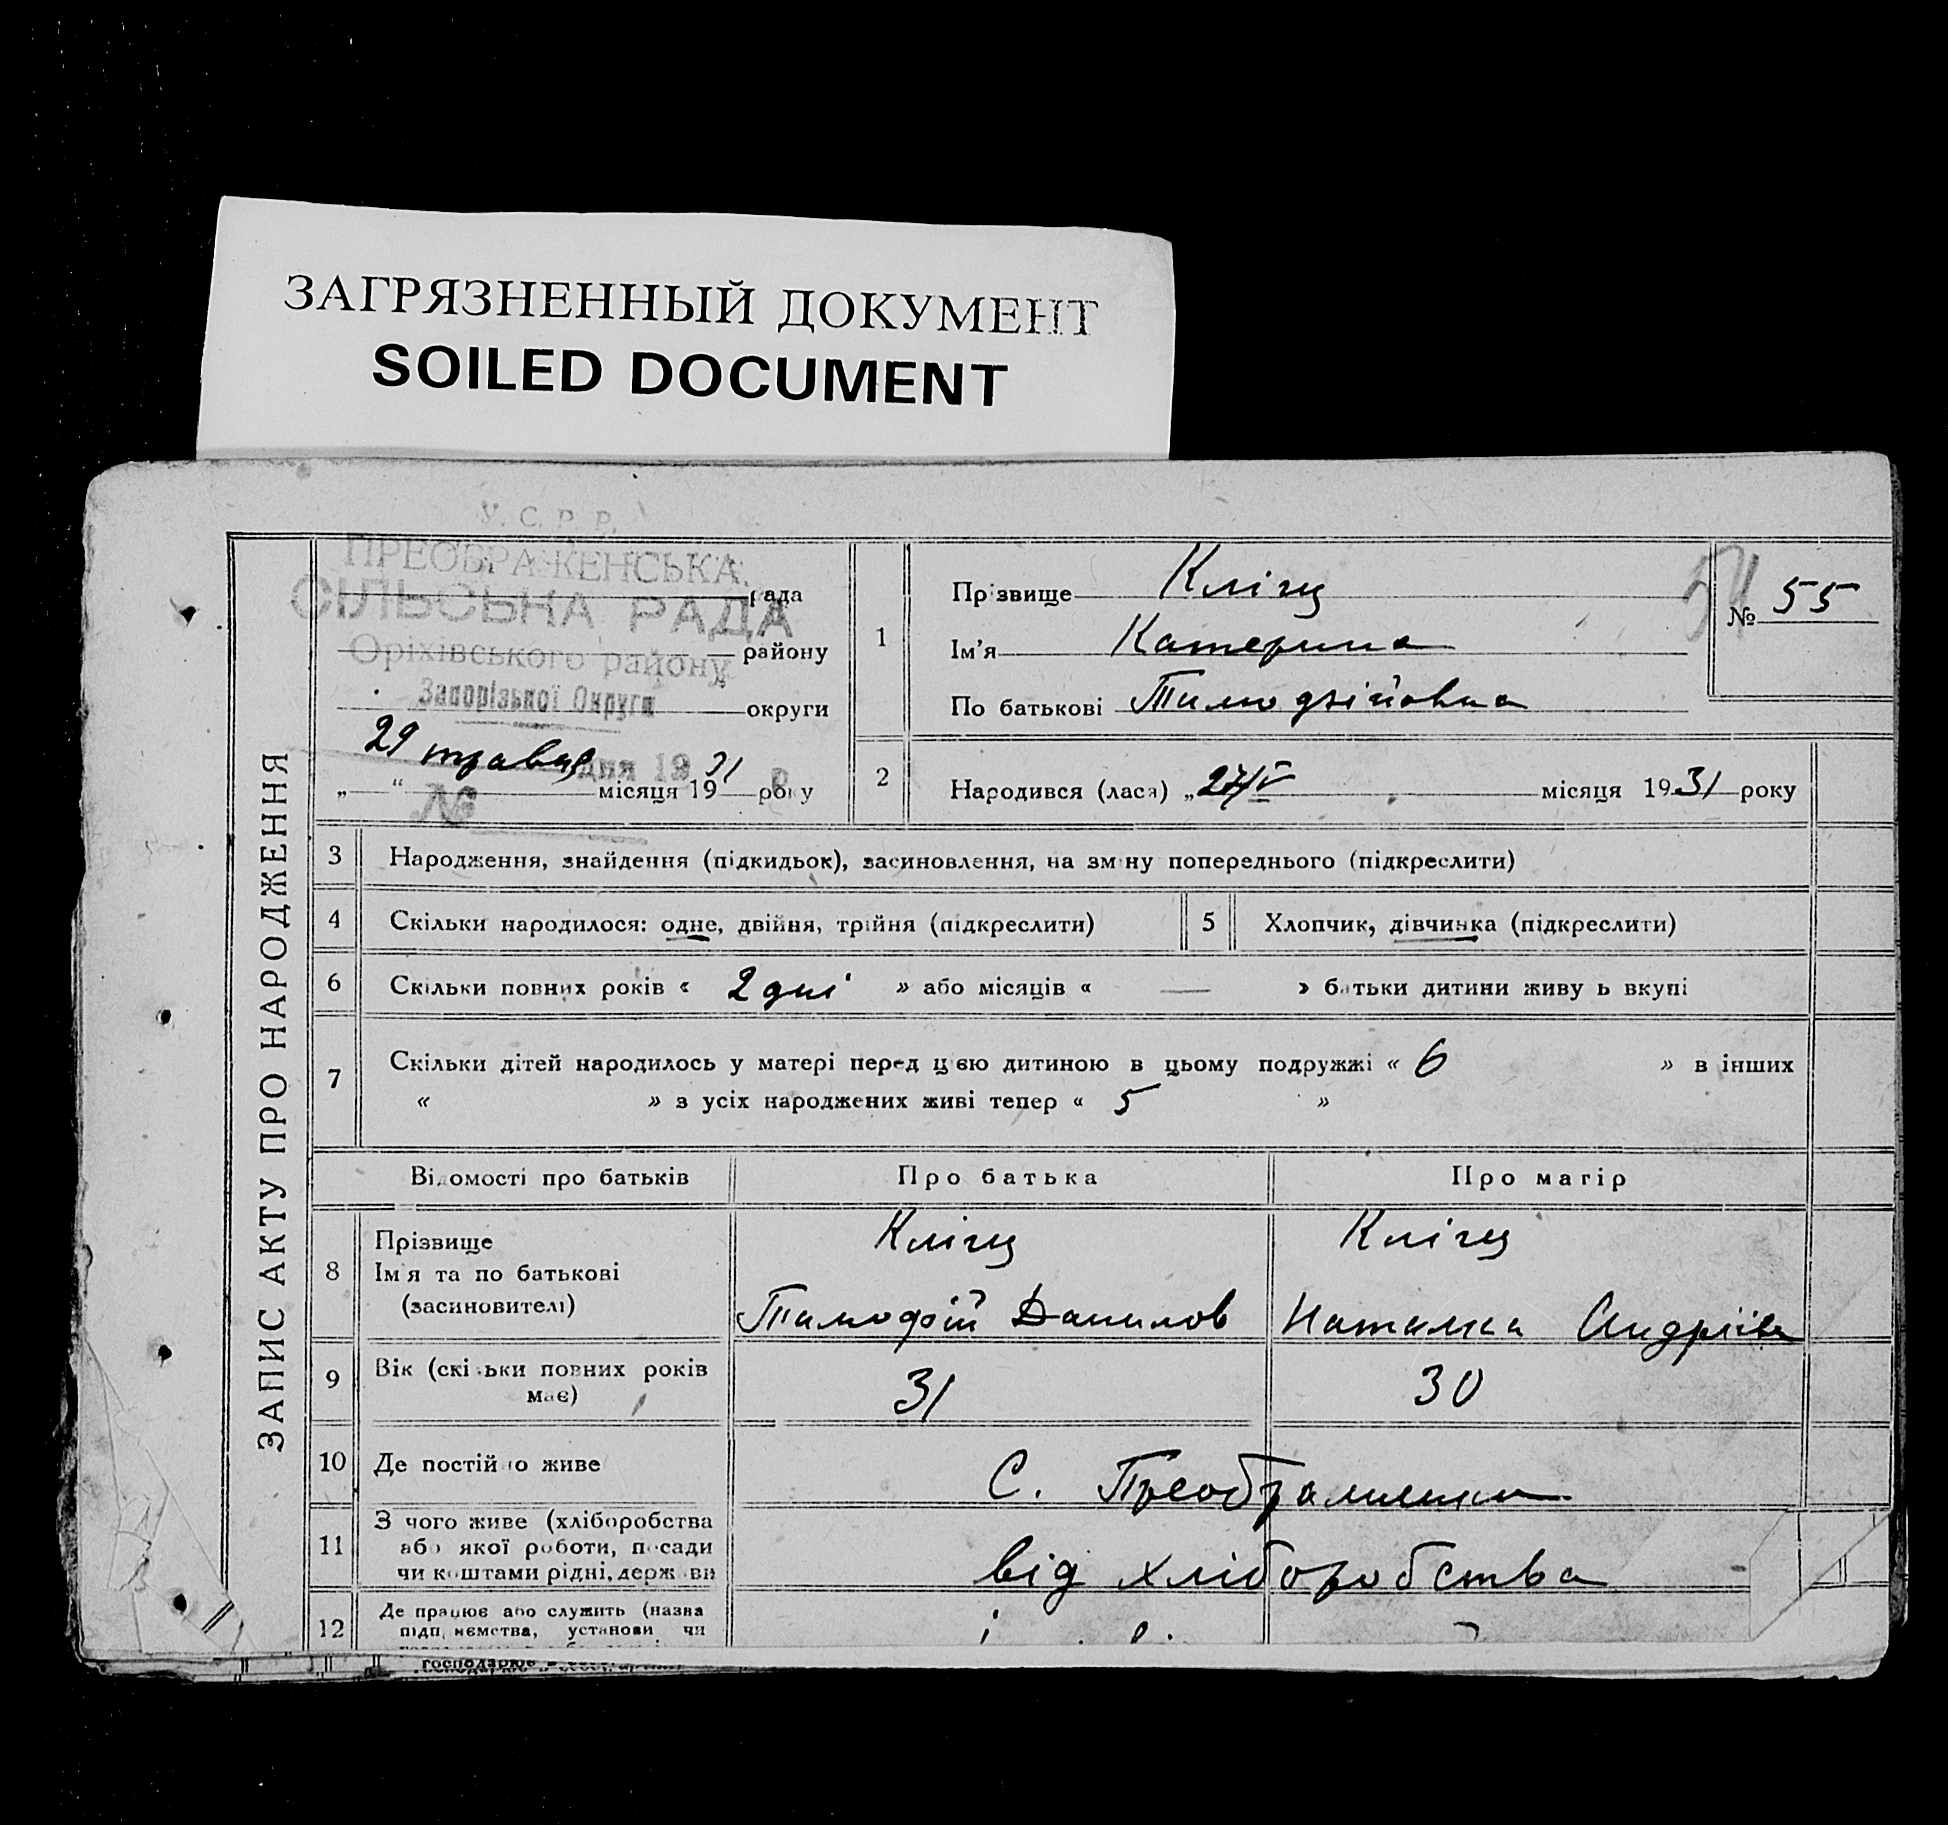 ЗАГРЯЗНЕННЫЙ ДОКУМЕНТ
SOILED DOCUMENT
У. С. Р. Р.
ПРЕОБРАЖЕНСЬКА
СІЛЬСЬКА РАДА
Оріхівського району
Запорізької Округи
дня 19 р.
№
ЗАПИС АКТУ ПРО НАРОДЖЕННЯ
рада
району
округи
29 травня
„ “ місяця 1931 року
1
Прізвище Кліщ
Ім'я Катерина
По батькові Тимофійовна
54
№ 55
2
Народився (лася) „27/V місяця 1931 року
3 Народження, знайдення (підкидьок), засиновлення, на зміну попереднього (підкреслити)
4 Скільки народилося: одне, двійня, трійня (підкреслити)
5 Хлопчик, дівчинка (підкреслити)
6 Скільки повних років « 2 дні » або місяців « — » батьки дитини живуть вкупі
7 Скільки дітей народилось у матері перед цією дитиною в цьому подружжі « 6 » в інших
« » з усіх народжених живі тепер « 5 »
Відомості про батьків Про батька Про матір
8 Прізвище
Ім'я та по батькові
(засиновителі)
Кліщ
Тимофій Данилов
Кліщ
Наталка Андріїв
9 Вік (скільки повних років
має)
31
30
10 Де постійно живе
С. Преображенка
11 З чого живе (хліборобства
або якої роботи, посади
чи коштами рідні, держави
від хліборобства
12 Де працює або служить (назва
підприємства, установи чи